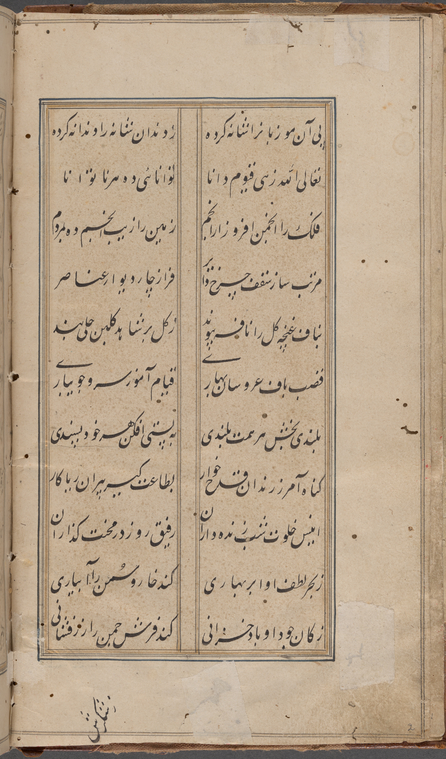 پی آن مو زبانرا شانه کرده ز دندان شانه را دندانه کرده
تعالی الله زهی قیوم دانا توانائی ده هر ناتوانا
فلک را انجمن افروز از انجم زمین را زیب انجم ده بمردم
مرتب ساز سقف چرخ دائر فراز چار دیوار عناصر
بناف غنچه گل را نافه پیوند ز گل بر شاهد گلبن حلی بند
قصب باف عروسان بهاری قیام آموز سرو جویباری
بلندی بخش هر همت بلندی به پستی افکن هر خود پسندی
گناه آمرز رندان قدح خوار بطاعت گیر پیران ریاکار
انیس خلوت شب زنده داران رفیق روز در محنت گذاران
ز بحر لطف او ابر بهاری کند خار و سمن را آبیاری
ز کان جود او باد خزانی کند فرش چمن را زرفشانی
ز شکرش